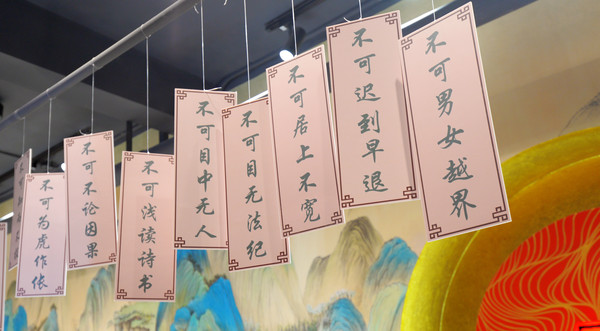 不可为虎作伥
不可不论因果
不可浅读诗书
不可目中无人
不可目无法纪
不可居上不宽
不可迟到早退
不可男女越界